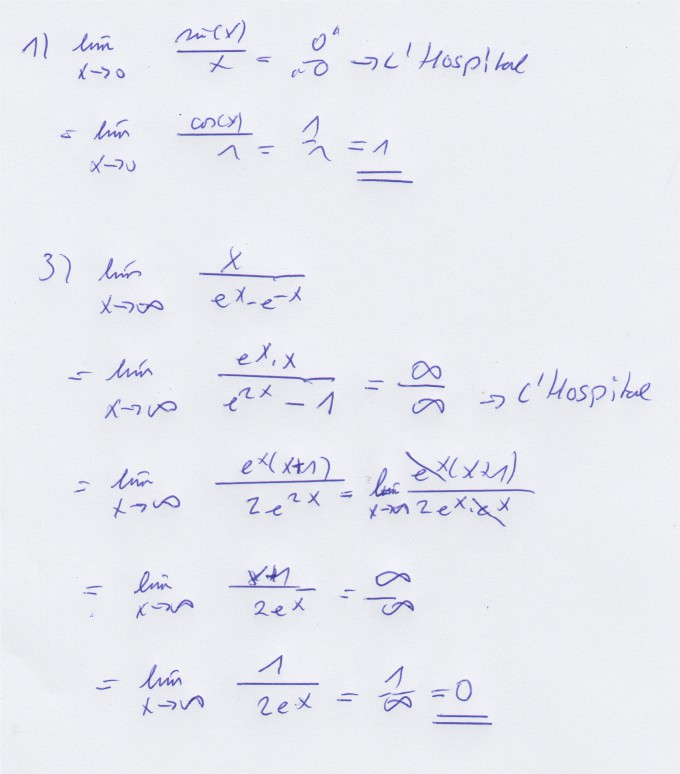 1) lim x→0 sin(x)/x = "0/0" → L'Hospital
= lim x→0 cos(x)/1 = 1/1 = 1
3) lim x→∞ x/(e^x - e^-x)
= lim x→∞ (e^x · x)/(e^2x - 1) = ∞/∞ → L'Hospital
= lim x→∞ e^x(x+1)/(2e^2x) = lim x→∞ e^x(x+1)/(2e^x · e^x)
= lim x→∞ (x+1)/(2e^x) = ∞/∞
= lim x→∞ 1/(2e^x) = 1/∞ = 0